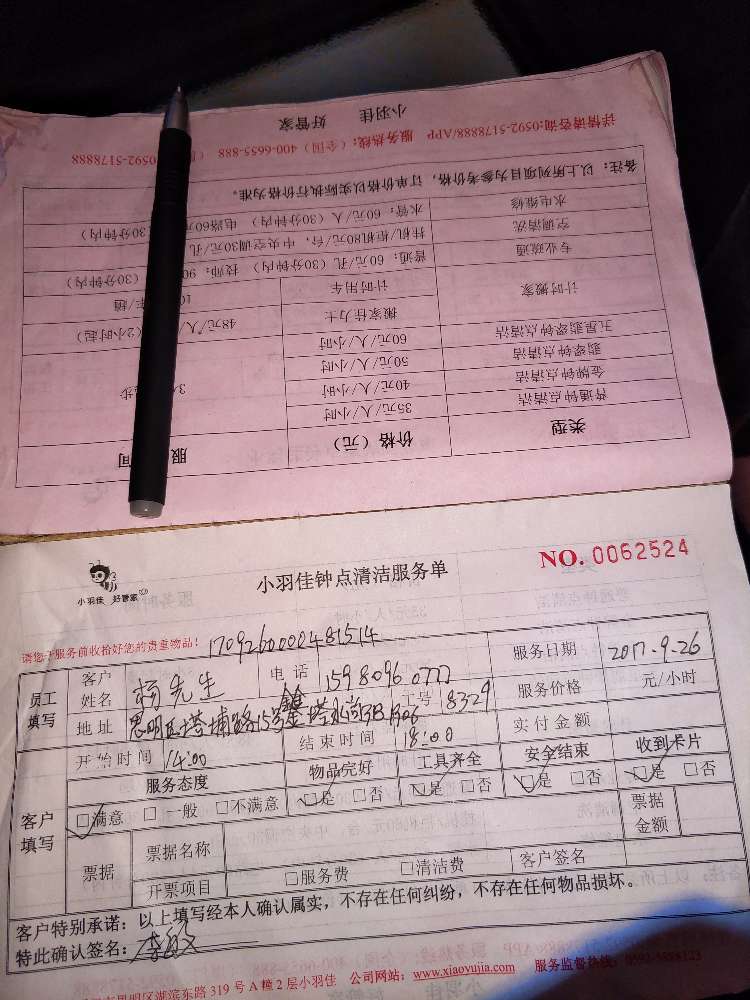 小羽佳 好管家
详情请咨询:0592-5178888/APP 服务热线：（全国）400-6655-888 0592-5178888
备注：以上所列项目为参考价格，订单价格以实际执行价格为准。
水电维修 水管：60元/人（30分钟内） 电路60元 30分钟内）
空调清洗 挂机/柜机80元/台，中央空调30元/孔
专业疏通 普通：60元/孔（30分钟内） 技师：90 （30分钟
计时搬家 计时用车 10 车/趟
搬家佳力士 48元/人/ （2小时起）
五星翡翠钟点清洁 60元/人/小时
翡翠钟点清洁 50元/人/小时
金牌钟点清洁 40元/人/小时
普通钟点清洁 35元/人/小时 3小 步
类型 价格（元） 服 间
小羽佳 好管家
小羽佳钟点清洁服务单
NO. 0062524
请您于服务前收拾好您的贵重物品！ 1709260000481514
员工填写 客户姓名 杨先生 电话 159 8096 0777 服务日期 2017.9.26
地址 思明区塔埔路15号 1306 工号 8329 服务价格 元/小时
开始时间 14:00 结束时间 18:00 实付金额
客户填写 服务态度 物品完好 工具齐全 安全结束 收到卡片
□满意 □一般 □不满意 □是 □否 □是 □否 □是 □否 □是 □否
票据 票据名称 票据金额
开票项目 □服务费 □清洁费 客户签名
客户特别承诺：以上填写经本人确认属实，不存在任何纠纷，不存在任何物品损坏。
特此确认签名：
思明区湖滨东路 319 号 A 幢 2 层小羽佳 公司网站：www.xiaoyujia.com 服务监督热线：0592-5888123